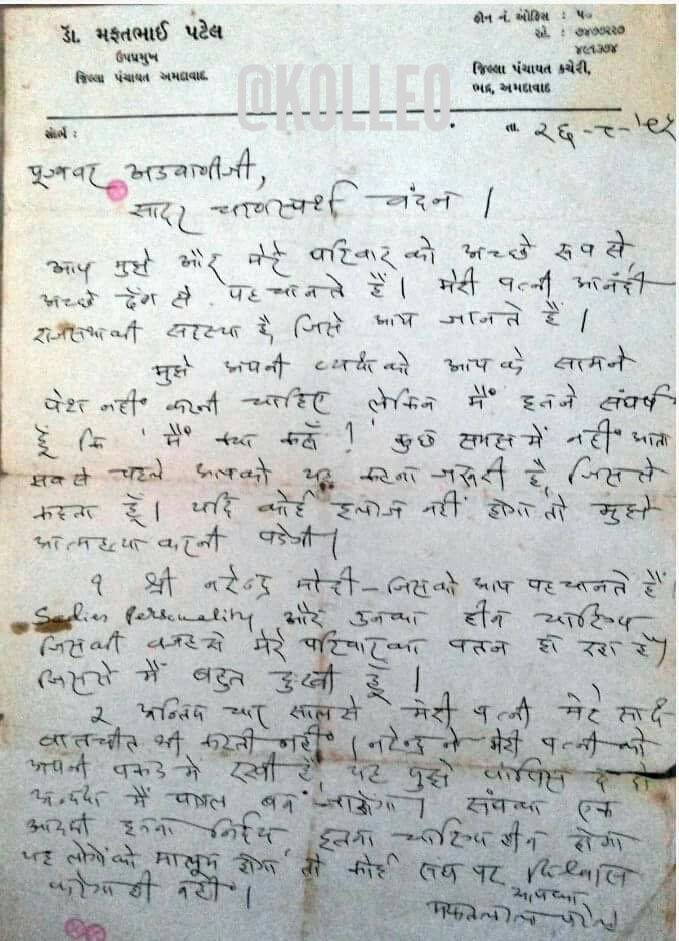 ડૉ. મફતભાઈ પટેલ
ઉપપ્રમુખ
જિલ્લા પંચાયત અમદાવાદ.
ફોન નં. ઓફિસ : ૫૦
ઘરે. : ૭૪૭૦૨૨૦
જિલ્લા પંચાયત કચેરી,
ભદ્ર, અમદાવાદ
@KOLLEO
તા. ૨૬-૮-
अडवाणीजी,
सादर चरणस्पर्श वंदन ।
आप मुझे और मेरे परिवार को अच्छे रूप से,
अच्छे ढंग से पहचानते हैं । मेरी पत्नी आनंदी
सदस्या है, जिसे आप जानते हैं ।
मुझे अपनी व्यथा को आपके सामने
पेश नहीं करनी चाहिए लेकिन मैं इतने संघर्ष
हूँ कि मैं क्या कहूँ ! कुछ समझ में नहीं आता
सबसे पहले आपको यह कहना जरूरी है, जिससे
कहता हूँ । यदि कोई इलाज नहीं होगा तो मुझे
आत्महत्या करनी पडेगी ।
१ श्री नरेन्द्र मोदी – जिसको आप पहचानते हैं ।
Personality और उनका हीन चारित्र्य
जिसकी वजह से मेरे परिवार का पतन हो रहा है ।
जिससे मैं बहुत दुःखी हूँ ।
२ अन्तिम चार साल से मेरी पत्नी मेरे साथ
बातचीत भी करती नहीं । नरेन्द्र ने मेरी पत्नी को
अपनी पकड में रखी है, यह मुझे वापिस दे दो
मैं पागल बन जाऊंगा । संघ का एक
आदमी इतना निर्दय, इतना चारित्र्यहीन होगा
यह लोगों को मालूम होगा तो कोई संघ पर विश्वास
करेगा ही नहीं ।
आपका